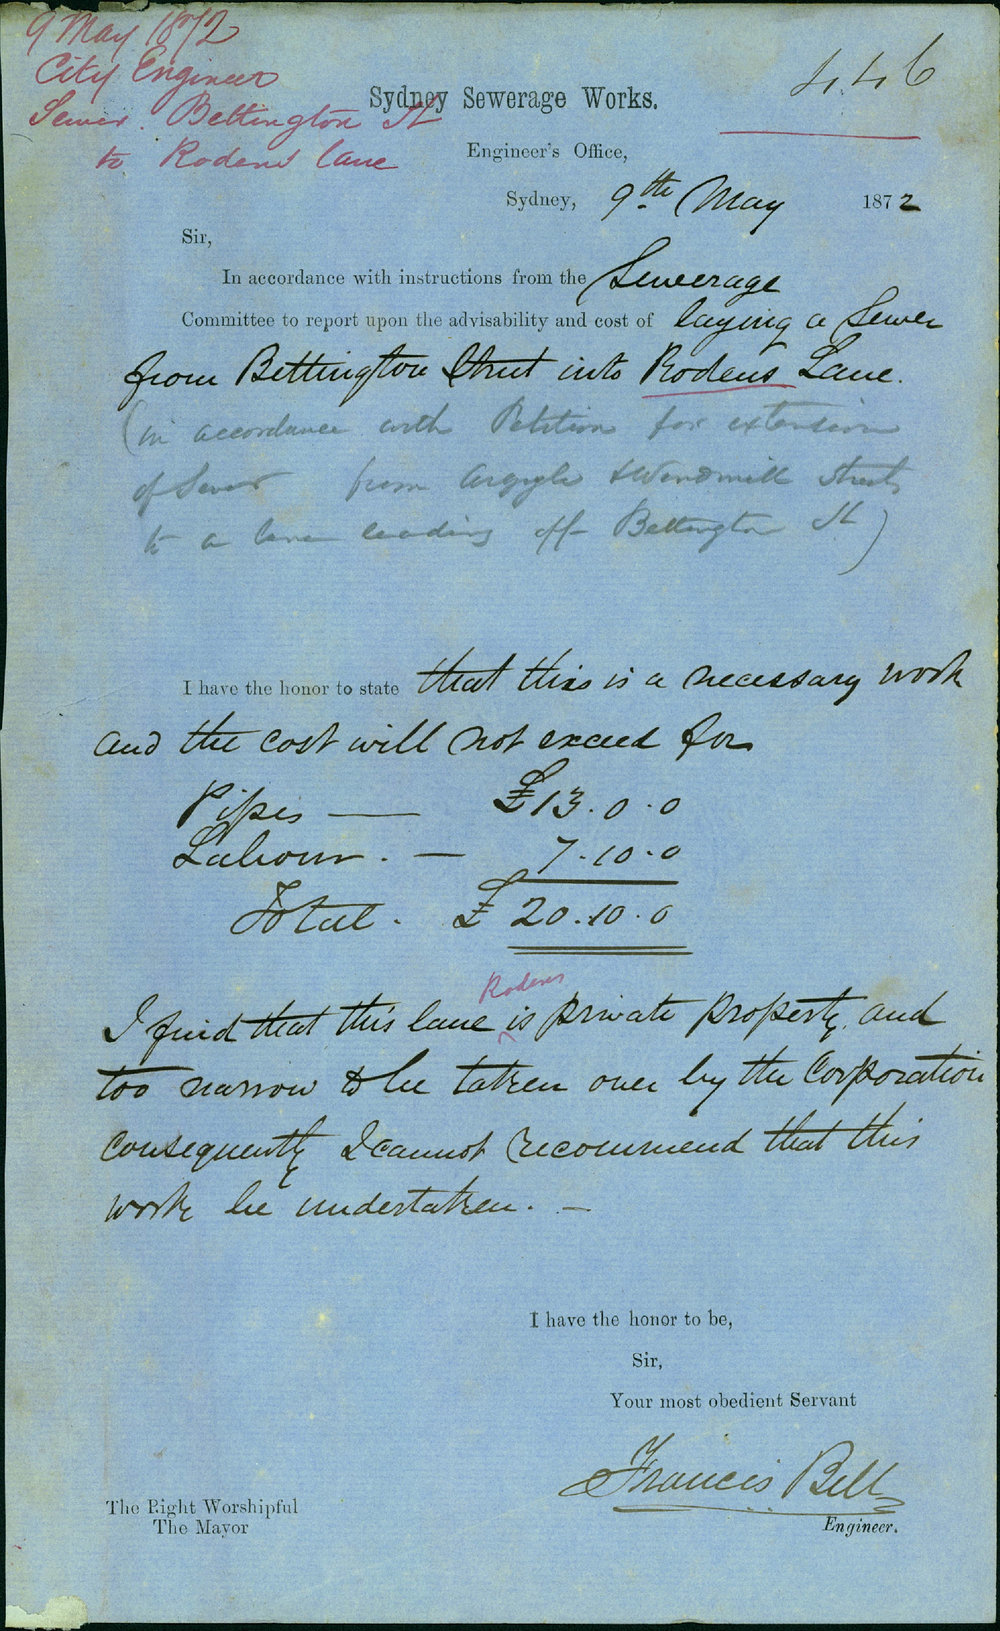 9 May 1872
City Engineer
Sewer. Bettington St
to Rodens lane
446
Sydney Sewerage Works.
Engineer's Office,
Sydney, 9th May 1872
Sir,
In accordance with instructions from the Sewerage
Committee to report upon the advisability and cost of laying a Sewer
from Bettington Street into Rodens Lane.
(in accordance with Petition for extension
of Sewer from Argyle & Windmill Streets
to a lane leading off Bettington St)
I have the honor to state that this is a necessary work
and the cost will not exceed for
Pipes — £13.0.0
Labour. — 7.10.0
Total. £20.10.0
Rodens
I find that this lane is private property, and
too narrow to be taken over by the Corporation
consequently I cannot recommend that this
work be undertaken. —
I have the honor to be,
Sir,
Your most obedient Servant
Francis Bell
Engineer.
The Right Worshipful
The Mayor